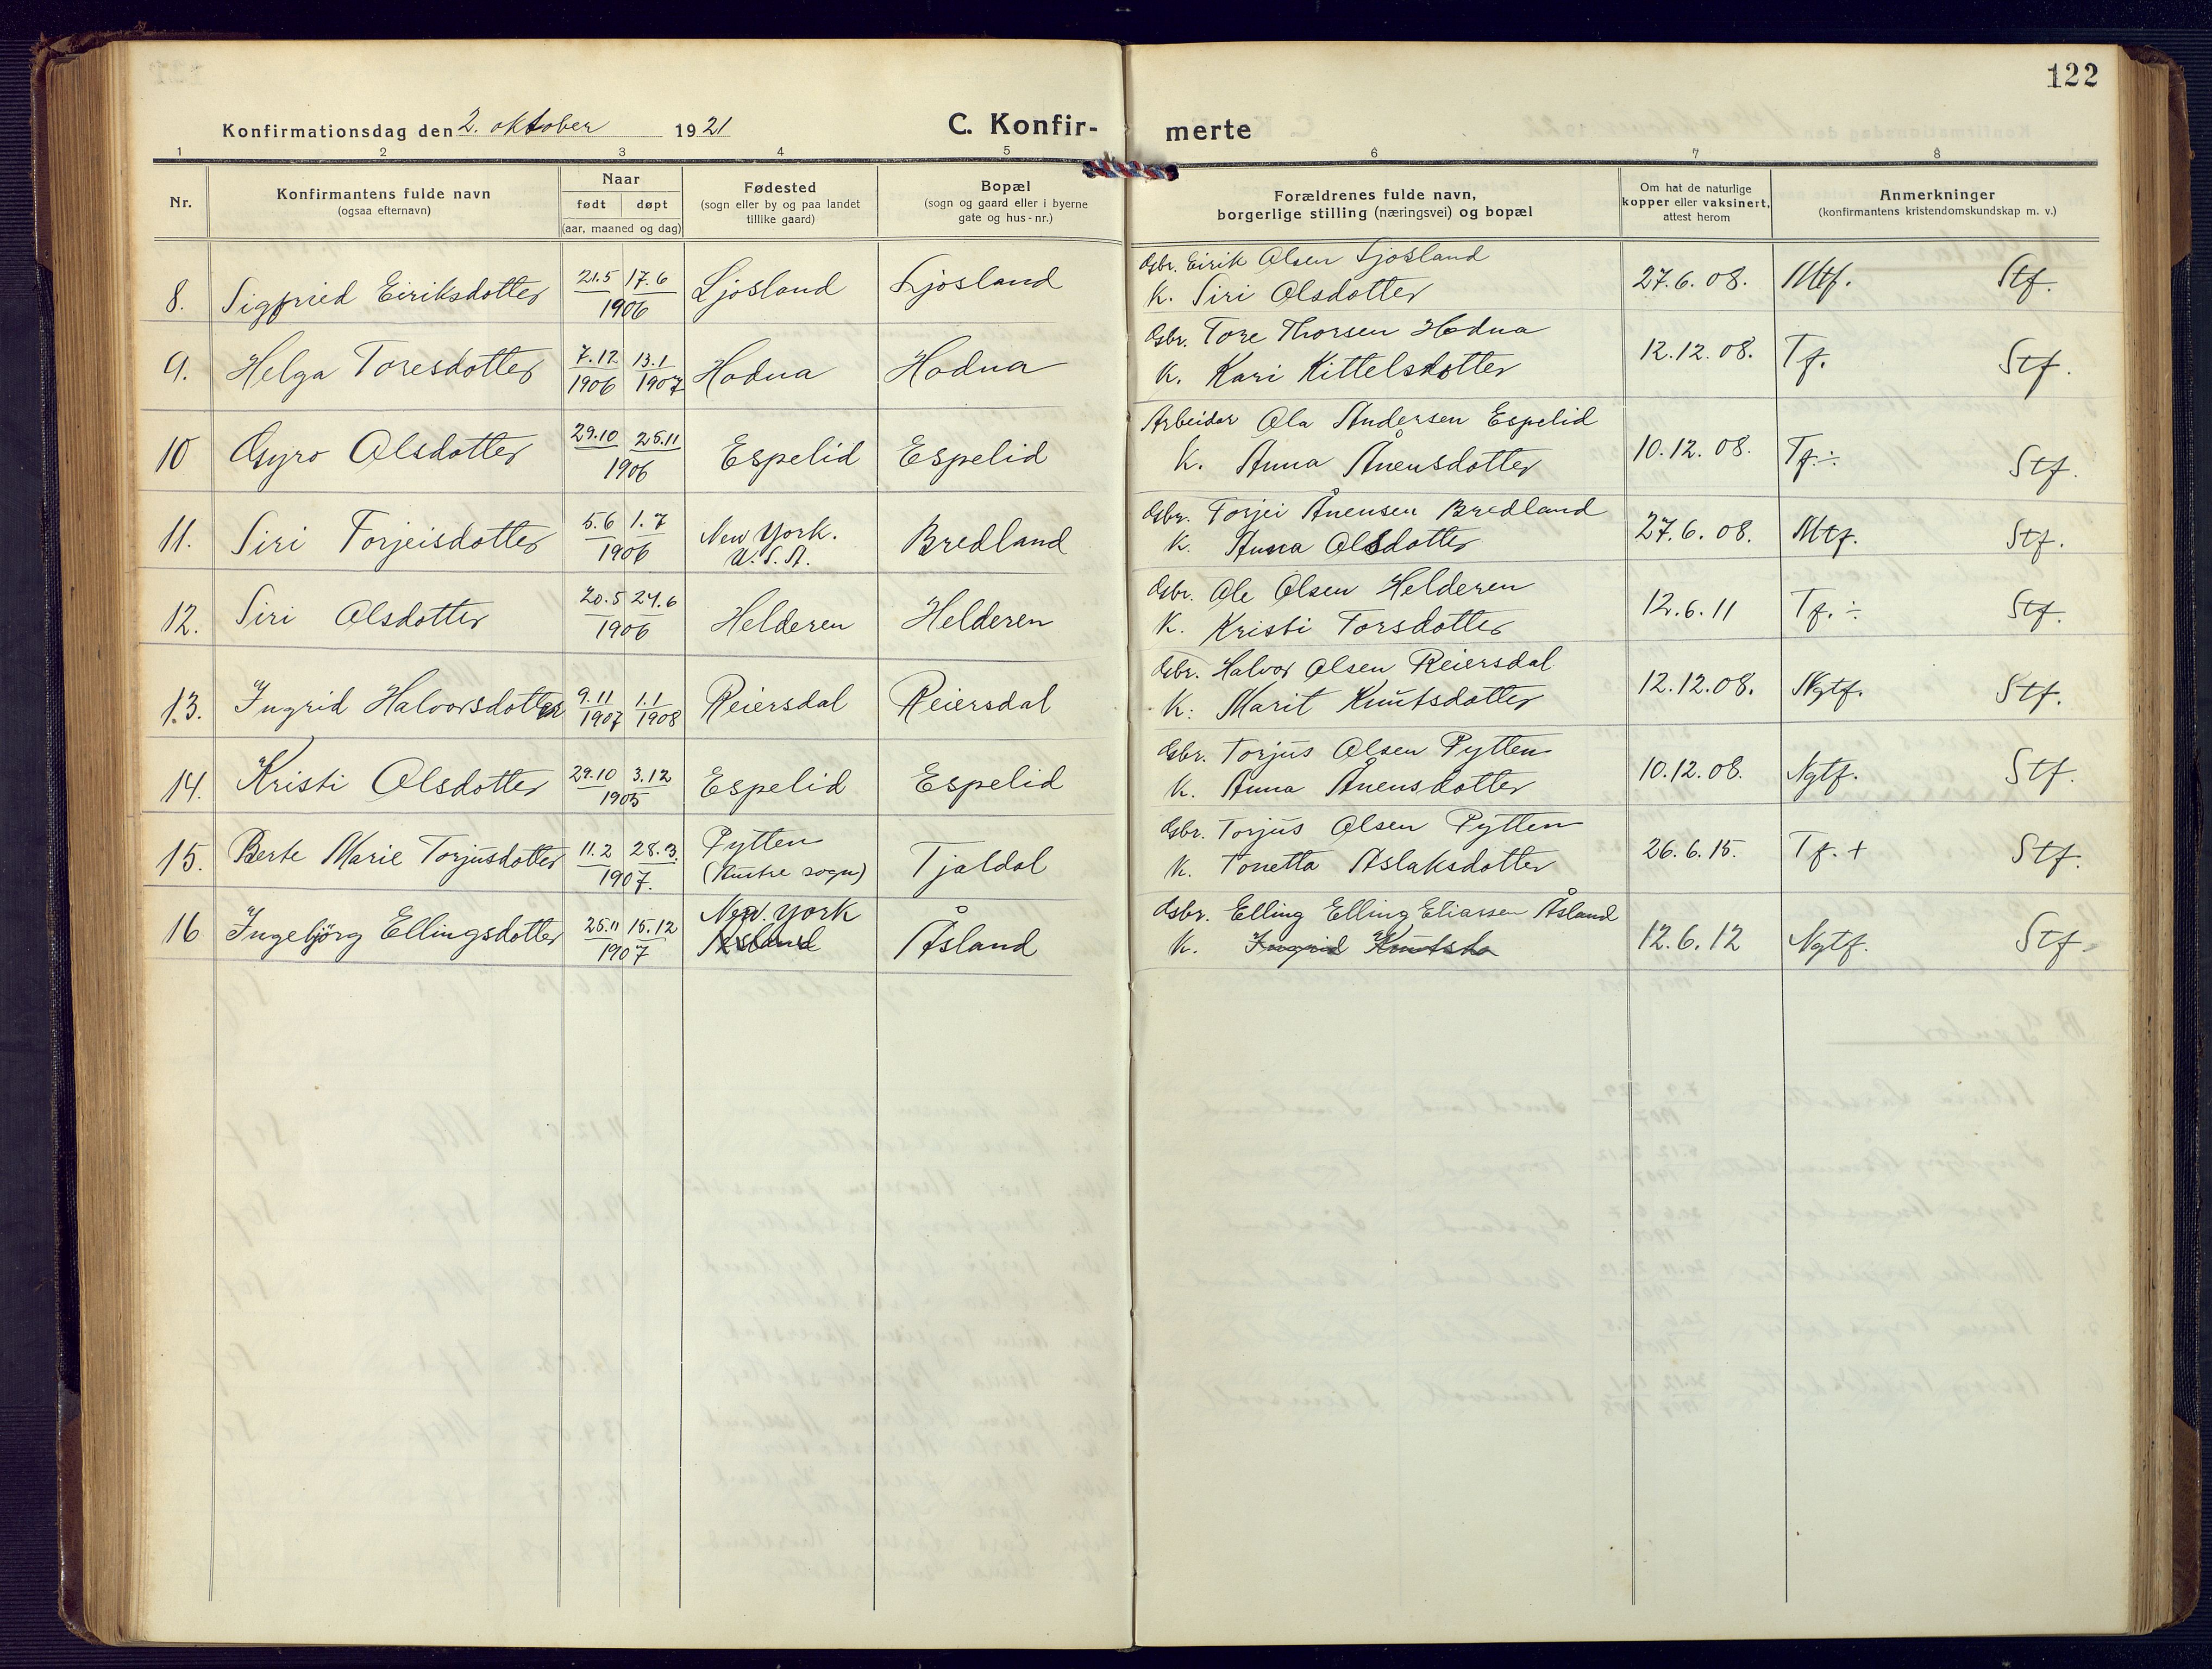 122
Konfirmationsdag den 2. oktober 1921 C. Konfir-merte
1 2 3 4 5 6 7 8
Nr.
Konfirmantens fulde navn
(ogsaa efternavn)
Naar
født døpt
(aar, maaned og dag)
Fødested
(sogn eller by og paa landet
tillike gaard)
Bopæl
(sogn og gaard eller i byerne
gate og hus-nr.)
Forældrenes fulde navn,
borgerlige stilling (næringsvei) og bopæl
Om hat de naturlige
kopper eller vaksinert,
attest herom
Anmerkninger
(konfirmantens kristendomskundskap m. v.)
8. Sigfried Eiriksdotter 21.5 17.6 1906 Ljosland Ljosland
Gbr. Eirik Olsen Ljosland
K. Siri Olsdotter
27.6.08. Mtf. Stf.
9. Helga Toresdotter 7.12 1906 13.1 1907 Hodna Hodna
Gbr. Tore Thorsen Hodna
K. Kari Kittelsdotter
12.12.08. Tf. Stf.
10 Gyro Olsdotter 29.10 25.11 1906 Espelid Espelid
Arbeider Ola Andersen Espelid
K. Anna Ånensdotter
10.12.08. Tf.÷ Stf.
11. Siri Torjeisdotter 5.6 1.7 1906 New York. U.S.A. Bredland
Gbr. Torjei Ånensen Bredland
K. Anna Olsdotter
27.6.08. Mtf. Stf.
12. Siri Olsdotter 20.5 24.6 1906 Helderen Helderen
Gbr. Ole Olsen Helderen
K. Kristi Torsdotter
12.6.11 Tf.÷ Stf.
13. Ingrid Halvorsdotter 9.11 1907 1.1 1908 Reiersdal Reiersdal
Gbr. Halvor Olsen Reiersdal
K. Marit Knutsdotter
12.12.08. Ngtf. Stf.
14. Kristi Olsdotter 29.10 3.12 1905 Espelid Espelid
Gbr. Torjus Olsen Pytten
K. Anna Ånensdotter
10.12.08. Ngtf. Stf.
15. Berte Marie Torjusdotter 11.2 28.3. 1907. Pytten (Austre sogn) Tjaldal
Gbr. Torjus Olsen Pytten
K. Tonetta Aslaksdotter
26.6.15. Tf.+ Stf.
16 Ingebjörg Ellingsdotter 25.11 15.12 1907 New. York Åsland Åsland
Gbr. Elling Elling Eliassen Åsland
K. Ingrid Knutsdo
12.6.12 Ngtf. Stf.